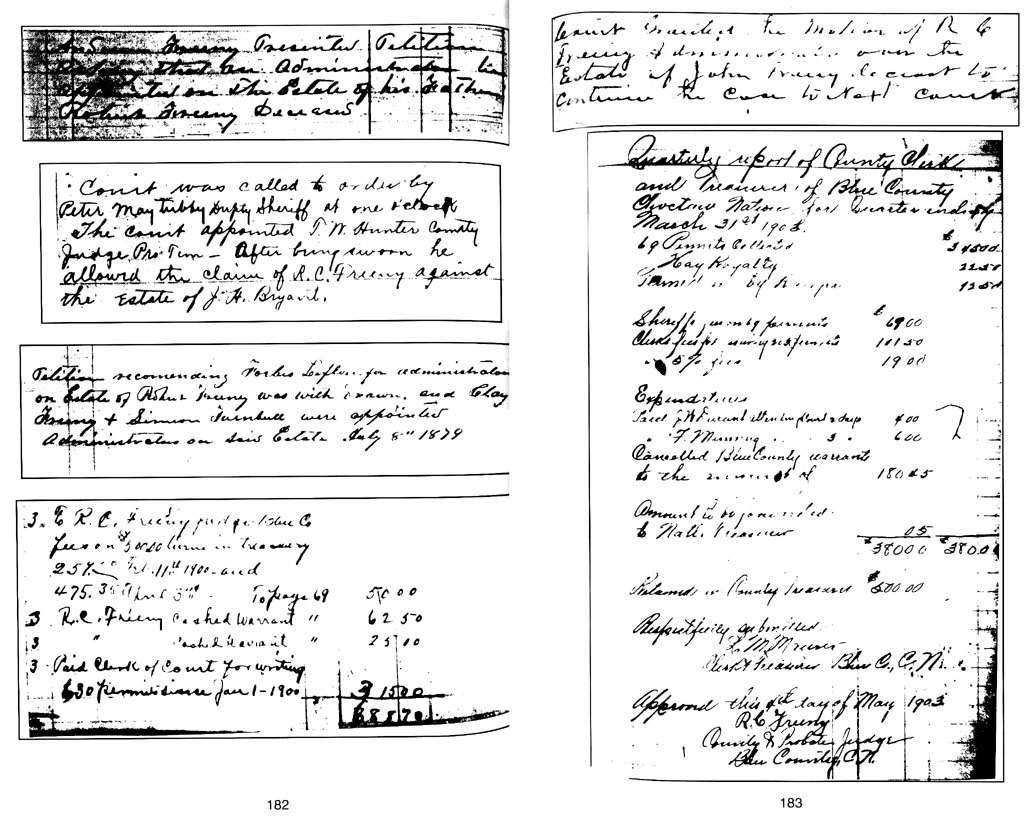 Freeny Presented Petition
asking that an Administrator be
appointed on The Estate of his Father
Robert Freeny Deceased
Court was called to order by
Peter Maytubby Dupty Sheriff at one oclock
The court appointed T. W. Hunter County
Judge Pro Tem - After being sworn he
allowed the claim of R. C. Freeny against
the Estate of J. H. Bryant.
Petition recomending Forbes Leflore for administrator
on Estate of Robert Freeny was with drawn, and Clay
Freeny & Simeon Turnbull were appointed
Administrators on Said Estate July 8th 1879
3. To R. C. Freeny judge Blue Co
fees on turned in Treasury
11th 1900 and
475.35 April To page 69 50 00
3 R. C. Freeny cashed Warrant " 62 50
3 " cashed Warrant " 25 00
3 Paid Clerk of Court for writing
630 permits since Jan 1-1900 3 15 00
182
Court the Motion of R C
Freeny Administrator over the
Estate of John Freeny decease to
Continue the Case to Next Court
Quarterly report of County Clerk
and Treasurer of Blue County
Choctaw Nation for Quarter ending
March 31st 1903.
69 Permits Collected $345.00
Hay Royalty 22.50
Turned in by 12.50
Sheriff's permits $ 69 00
Clerks fees for permits 101 50
5% fees 19 00
Expenditures
Paid 4 00
" F. Manning 3 " 6 00
Cancelled Blue County warrants
to the amount of 180 45
Amount to
to Natl. Treasurer 05
$380 00 $380 0
Retained in County Treasurer $500 00
Respectfully submitted
Clerk & Treasurer Blue Co, C. N.
Approved this day of May 1903
R. C. Freeny
County & Probate Judge
Blue County, C. N.
183